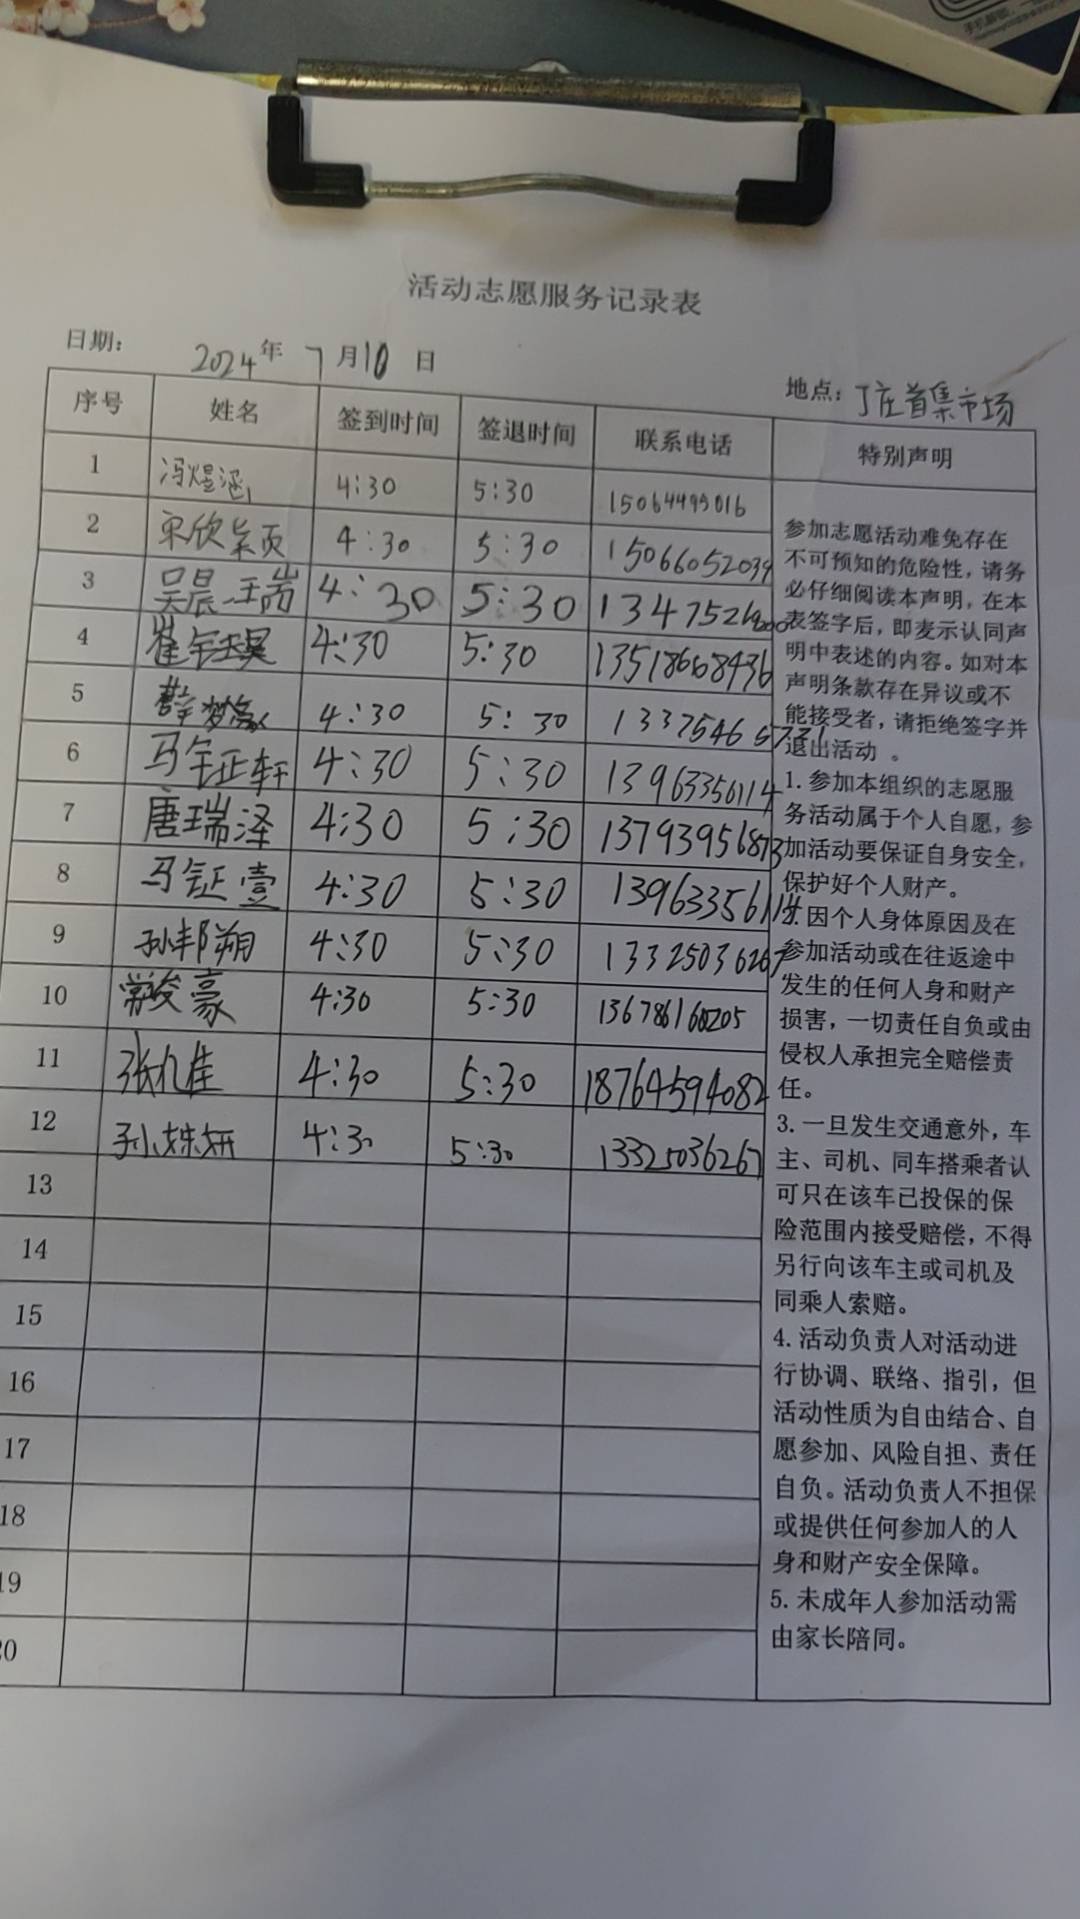 活动志愿服务记录表
日期： 2024年 7月10日
地点：丁庄首集市场
序号 姓名 签到时间 签退时间 联系电话 特别声明
1 冯煜涵 4:30 5:30 15064495016
2 宋欣颖 4:30 5:30 15066052039
3 吴晨瑞 4:30 5:30
4 崔钰昊 4:30 5:30 13518668436
5 4:30 5:30
6 马钲轩 4:30 5:30 13963356114
7 唐瑞泽 4:30 5:30 13793956873
8 马钲壹 4:30 5:30 13963356114
9 孙邦翔 4:30 5:30 13325036267
10 常俊豪 4:30 5:30 13678616205
11 张九佳 4:30 5:30 18764594082
12 孙姝妍 4:30 5:30 13325036267
13
14
15
16
17
18
19
20
参加志愿活动难免存在
不可预知的危险性，请务
必仔细阅读本声明，在本
表签字后，即麦示认同声
明中表述的内容。如对本
声明条款存在异议或不
能接受者，请拒绝签字并
退出活动 。
1. 参加本组织的志愿服
务活动属于个人自愿，参
加活动要保证自身安全，
保护好个人财产。
2. 因个人身体原因及在
参加活动或在往返途中
发生的任何人身和财产
损害，一切责任自负或由
侵权人承担完全赔偿责
任。
3. 一旦发生交通意外，车
主、司机、同车搭乘者认
可只在该车已投保的保
险范围内接受赔偿，不得
另行向该车主或司机及
同乘人索赔。
4. 活动负责人对活动进
行协调、联络、指引，但
活动性质为自由结合、自
愿参加、风险自担、责任
自负。活动负责人不担保
或提供任何参加人的人
身和财产安全保障。
5. 未成年人参加活动需
由家长陪同。